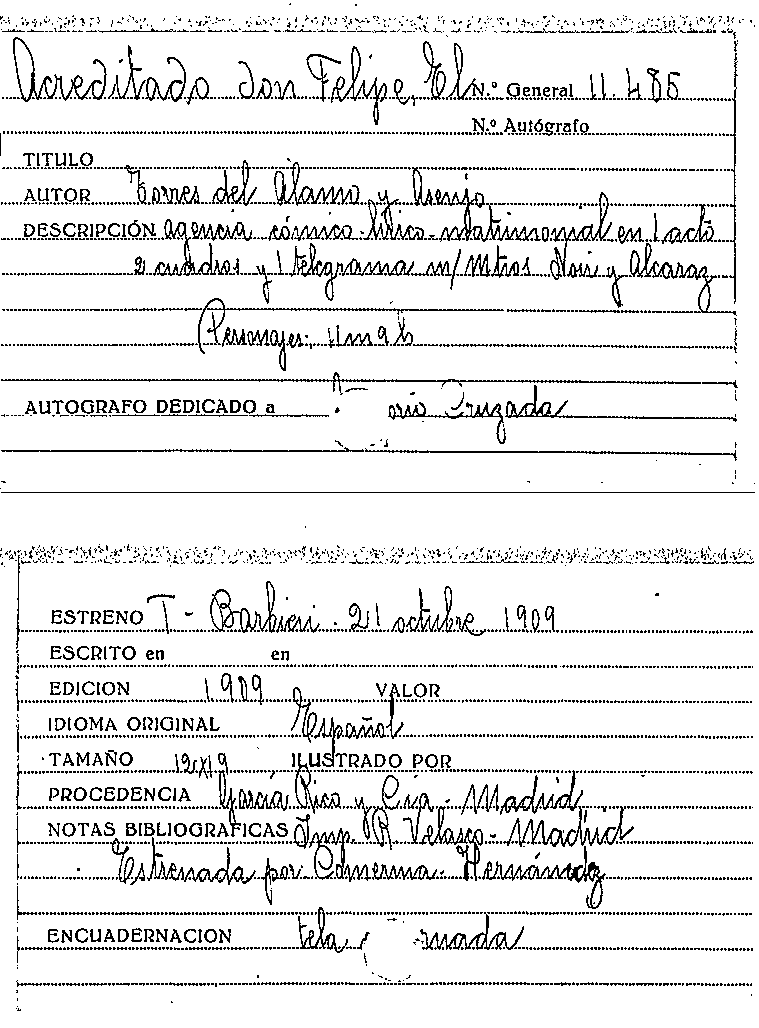 Acreditado don Felipe, El N.º General 11.485
N.º Autógrafo
TITULO
AUTOR Torres del Alamo y Asenjo
DESCRIPCIÓN agencia cómico-lírico-matrimonial en 1 acto
2 cuadros y 1 telegrama m/ Mtros Noir y Alcaraz
Personajes: 11 m 9 h
AUTOGRAFO DEDICADO a Cruzada
ESTRENO T - Barbieri - 21 octubre 1909
ESCRITO en en
EDICION 1909 VALOR
IDIOMA ORIGINAL Español
TAMAÑO 12x19 ILUSTRADO POR
PROCEDENCIA García Rico y Cía - Madrid
NOTAS BIBLIOGRAFICAS Imp. R Velasco - Madrid
Estrenada por Comerma - Hernández
ENCUADERNACION tela